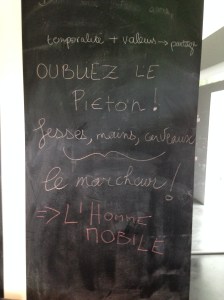 temporalité + valeurs → partage
OUBLIEZ LE
PIETON !
fesses, mains, cerveaux
le marcheur !
⇒ L'HOMME
MOBILE